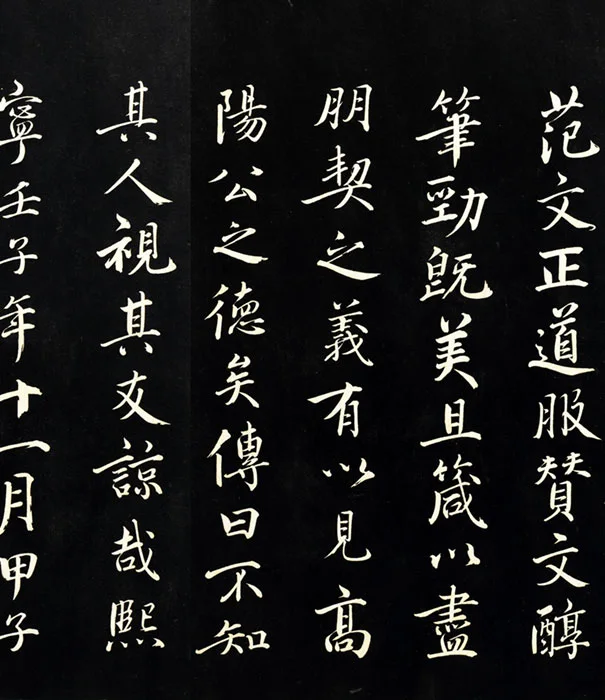 范文正道服贊文醇
筆勁既美且箴以盡
朋契之義有以見高
陽公之德矣傳曰不知
其人視其友諒哉熙
寧壬子年十一月甲子